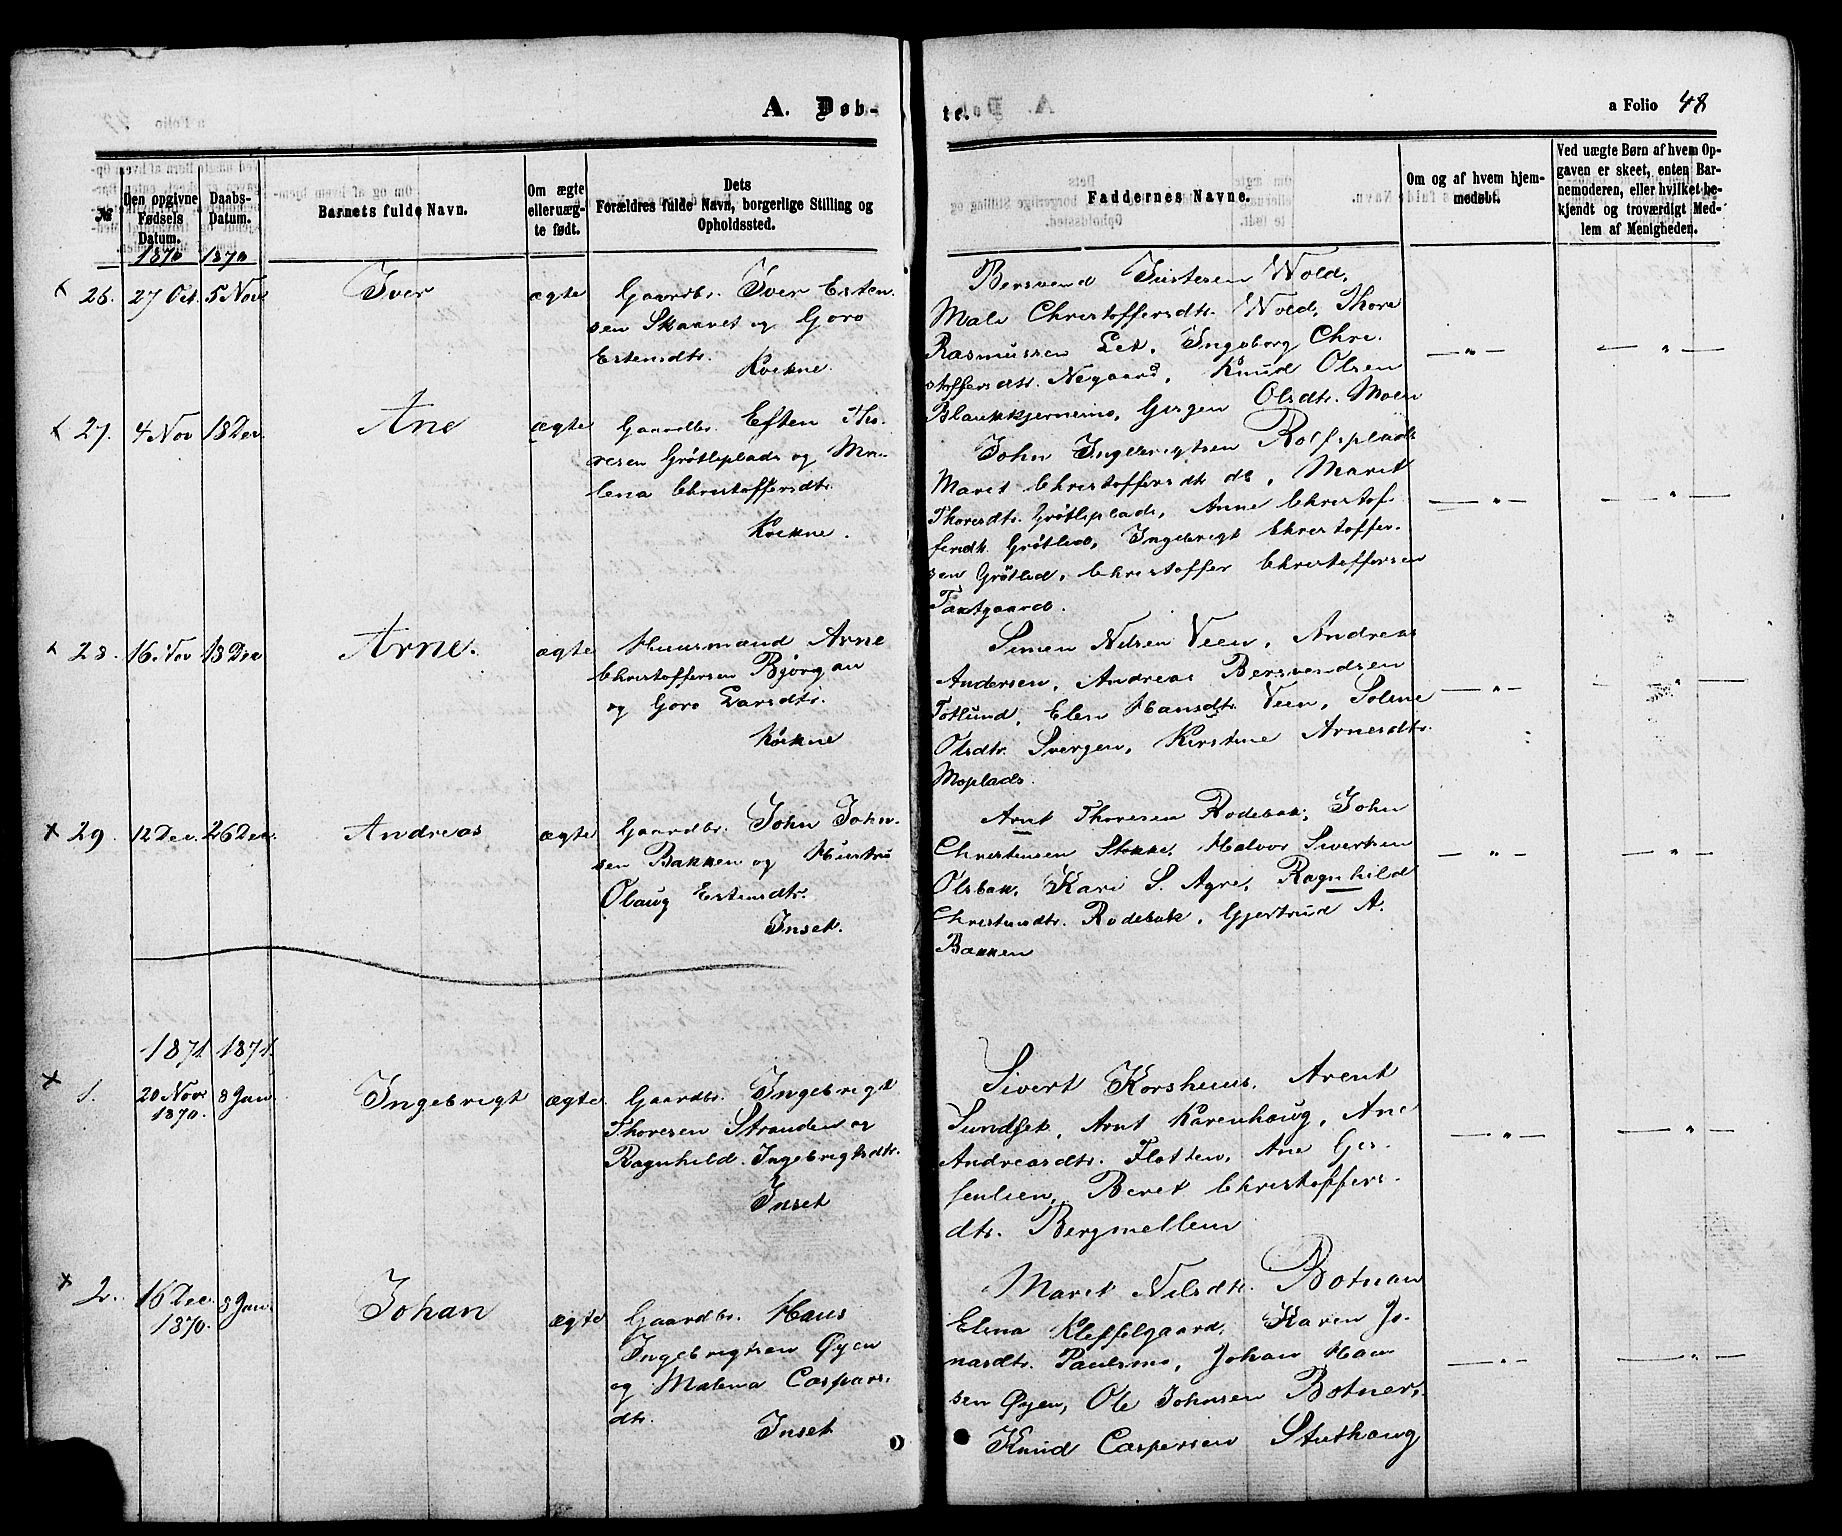 A. Døb-
te.
a Folio 48
№
Den opgivne Fødsels Datum.
Daabs-Datum.
Barnets fulde Navn.
Om ægte eller uægte født.
Dets Forældres fulde Navn, borgerlige Stilling og Opholdssted.
Faddernes Navne.
Om og af hvem hjemmedøbt.
Ved uægte Børn af hvem Opgaven er skeet, enten Barnemoderen, eller hvilket bekjendt og troværdigt Medlem af Menigheden.
1870 1870
x 26. 27 Oct. 5 Nov. Iver ægte Gaardbr. Iver Esten-
sen Skaaret og Goro
Estensdtr.
Kvikne.
Bersvend Wold,
Mali Christoffersdtr. Wold, Thore
Rasmussen Eet, Ingeborg Chri-
stoffersdtr. Negaard, Knud Olsen
Olsdtr. Moen
x 27. 4 Nov 18 Dec. Ane ægte Gaardbr. Esten Tho-
resen Grøtliplads og Ma-
lena Christoffersdtr.
Kvikne.
John Ingebrigtsen
Marit Christoffersdtr. ds, Marit
Thoresdtr. Grøtliplads, Anne Christof-
fersdtr. Grøtlid, Ingebrigt Christoffer-
sen Grøtlid, Christoffer Christoffersen
x 28. 16 Nov 18 Dec Arne. ægte Huusmand Arne
Christoffersen Bjørgan
og Goro Larsdtr.
Kvikne
Simen Nilsen Veen, Andreas
Andersen, Andreas Bersvendsen
Totlund, Elen Hansdtr. Veen, Solene
Olsdtr. Svergen, Kirstine Arnesdtr.
Moplads.
x 29. 12 Dec. 26 Dec. Andreas ægte Gaardbr. John John-
sen Bakken og Hustru
Olaug Estensdtr.
Inset.
Arnt Thoresen Rodebak, John
Christensen Stokke, Halvor Sivertsen
Olsbak, Kari S. Agre, Ragnhild
Christensdtr. Rodebak, Gjertrud A.
Bakken
1871. 1871.
x 1. 20 Nov. 1870. 8 Jan. Ingebrigt ægte Gaardbr. Ingebrigt
Thoresen Stranden og
Ragnhild Ingebrigtsdtr.
Inset
Sivert Korshuus, Arent
Sundset, Arnt Karenhaug, Ane
Andreasdtr. Flotten, Ane
Beret Christoffers-
dtr. Bergmellem
x 2. 16 Dec. 1870. 8 Jan. Johan ægte Gaardbr. Hans
Ingebrigtsen Øyen
og Malena Caspars-
dtr.
Inset
Marit Nilsdtr. Botnan
Elina Kleffelgaard, Karen Jo-
nasdtr. Paulsmo, Johan Han
sen Øyen, Ole Johnsen Botner,
Knud Caspersen Stuthaug